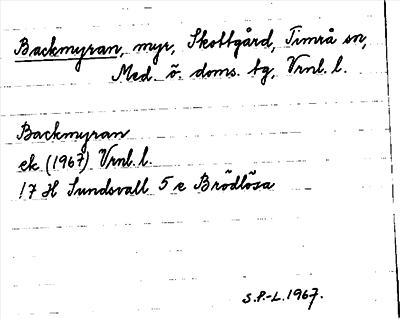 Backmyran, myr, Skottgård, Timrå sn,
Med. ö. doms. tg, Vrnl. l.
Backmyran
ek (1967) Vrnl. l.
17 H Sundsvall 5 e Brödlösa
S.P.-L. 1967.